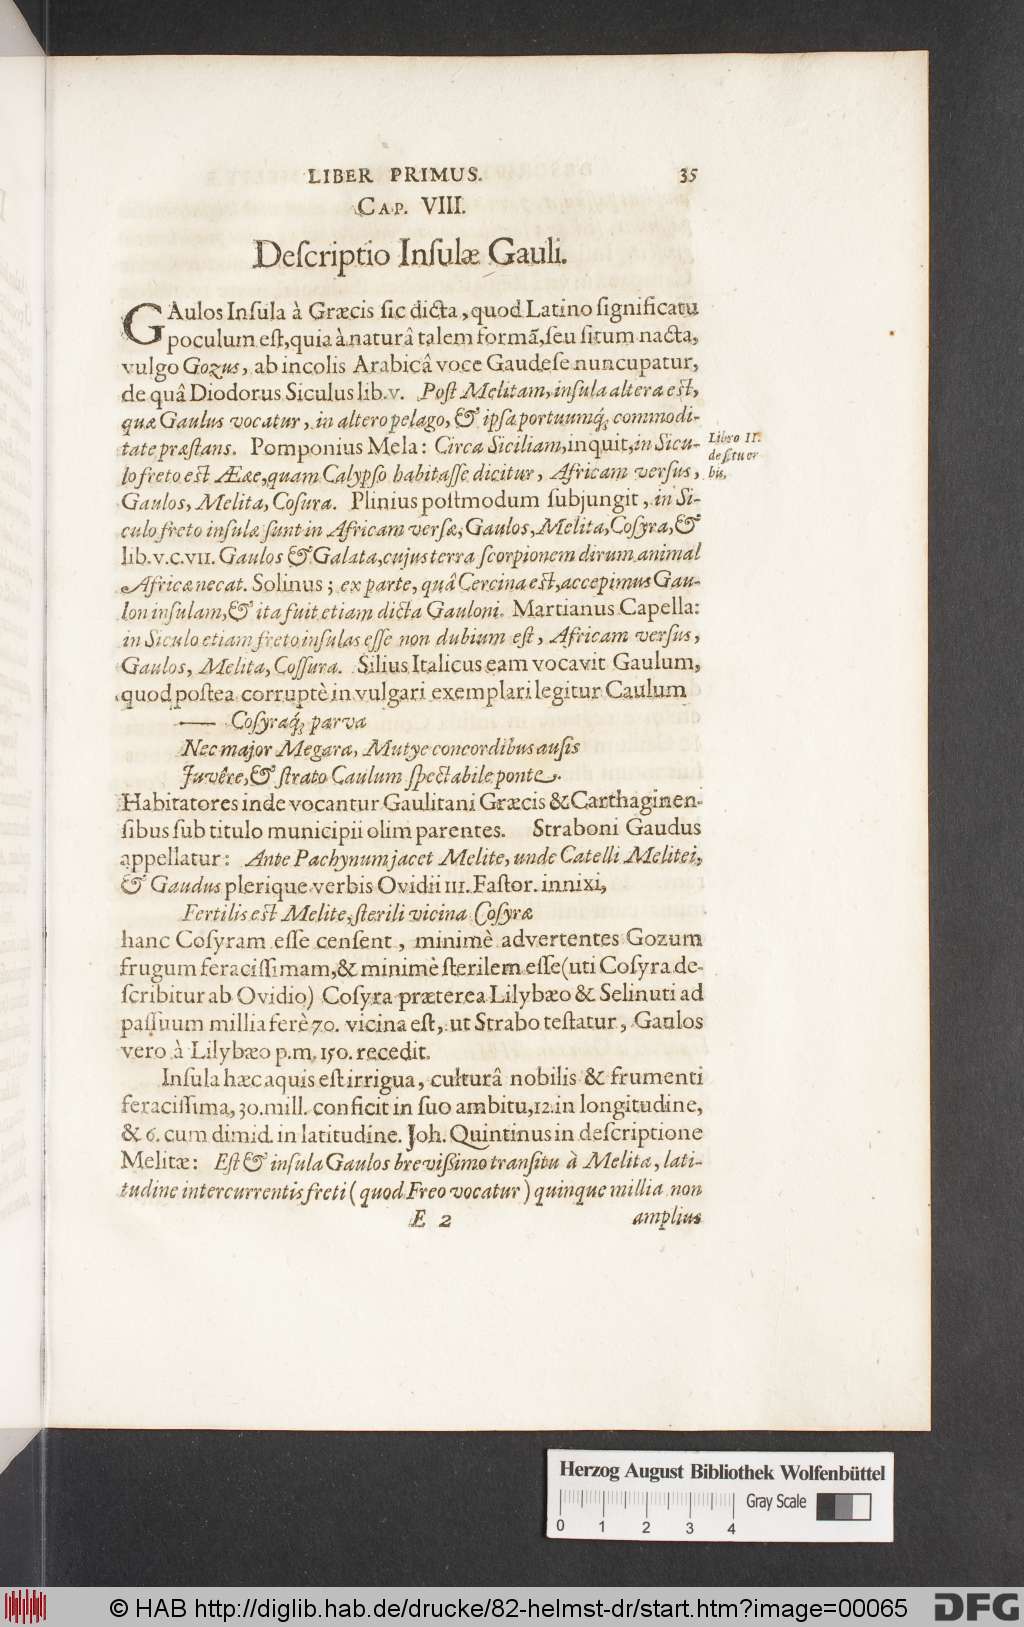 LIBER PRIMUS. 35
CAP. VIII.
Deſcriptio Inſulæ Gauli.
GAulos Inſula à Græcis ſic dicta, quod Latino ſignificatu
poculum eſt, quia à naturâ talem formã, ſeu ſitum nacta,
vulgo Gozus, ab incolis Arabicâ voce Gaudeſe nuncupatur,
de quâ Diodorus Siculus lib. v. Poſt Melitam, inſula altera eſt,
quæ Gaulus vocatur, in altero pelago, & ipſa portuumq́; commodi-
tate præſtans. Pomponius Mela: Circa Siciliam, inquit, in Sicu-
lo freto eſt Ææe, quam Calypſo habitaſſe dicitur, Africam verſus,
Libro II.
de ſitu or
bis.
Gaulos, Melita, Coſura. Plinius poſtmodum ſubjungit, in Si-
culo freto inſulæ ſunt in Africam verſæ, Gaulos, Melita, Coſyra, &
lib. v. c. VII. Gaulos & Galata, cujus terra ſcorpionem dirum animal
Africæ necat. Solinus; ex parte, quâ Cercina eſt, accepimus Gau-
lon inſulam, & ita fuit etiam dicta Gauloni. Martianus Capella:
in Siculo etiam freto inſulas eſſe non dubium eſt, Africam verſus,
Gaulos, Melita, Coſſura. Silius Italicus eam vocavit Gaulum,
quod poſtea corruptè in vulgari exemplari legitur Caulum
—— Coſyraq́; parva
Nec major Megara, Mutyce concordibus auſis
Juvêre, & ſtrato Caulum ſpectabile ponte.
Habitatores inde vocantur Gaulitani Græcis & Carthaginen-
ſibus ſub titulo municipii olim parentes. Straboni Gaudus
appellatur: Ante Pachynum jacet Melite, unde Catelli Melitei,
& Gaudus plerique verbis Ovidii III. Faſtor. innixi,
Fertilis eſt Melite, ſterili vicina Coſyræ
hanc Coſyram eſſe cenſent, minimè advertentes Gozum
frugum feraciſſimam, & minimè ſterilem eſſe (uti Coſyra de-
ſcribitur ab Ovidio) Coſyra præterea Lilybæo & Selinuti ad
paſſuum millia ferè 70. vicina eſt, ut Strabo teſtatur, Gaulos
vero à Lilybæo p.m. 150. recedit.
Inſula hæc aquis eſt irrigua, culturâ nobilis & frumenti
feraciſſima, 30. mill. conficit in ſuo ambitu, 12. in longitudine,
& 6. cum dimid. in latitudine. Joh. Quintinus in deſcriptione
Melitæ: Eſt & inſula Gaulos breviſſimo tranſitu à Melita, lati-
tudine intercurrentis freti (quod Freo vocatur) quinque millia non
E 2 amplius
Herzog August Bibliothek Wolfenbüttel
Gray Scale
0 1 2 3 4
© HAB http://diglib.hab.de/drucke/82-helmst-dr/start.htm?image=00065 DFG